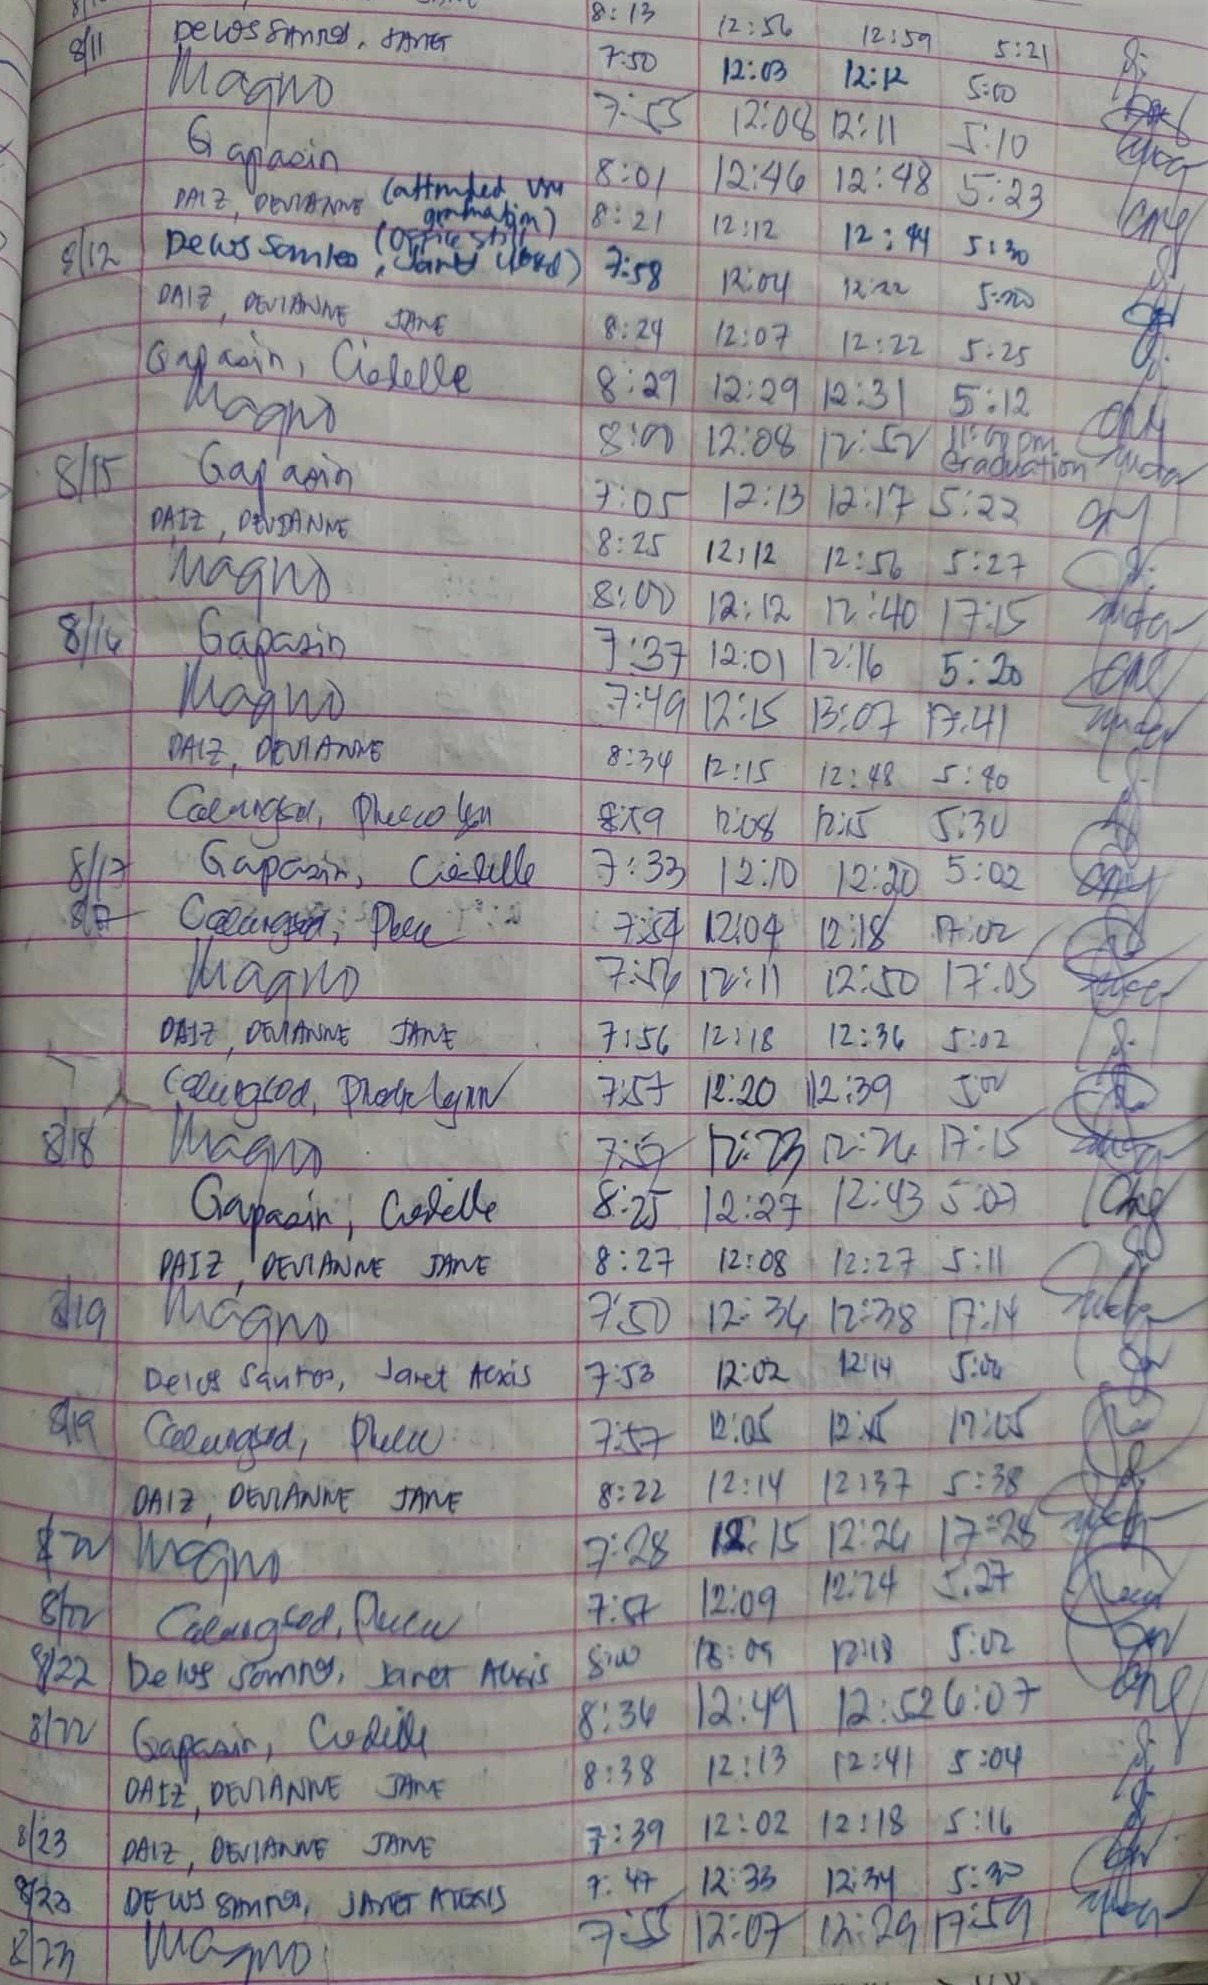 8:13 12:56 12:59 5:21
8/11 Delos Santos, Janet 7:50 12:03 12:12 5:00
Magno 7:55 12:08 12:11 5:10
Gapasin 8:01 12:46 12:48 5:23
DAIZ, DEVIANNE (attended graduation) 8:21 12:12 12:44 5:30
8/12 Delos Santos, Janet (Office still closed) 7:58 12:04 12:22 5:20
DAIZ, DEVIANNE JANE 8:24 12:07 12:22 5:25
Gapasin, Cidelle 8:29 12:29 12:31 5:12
Magno 8:00 12:08 12:52 Graduation
8/15 Gapasin 7:05 12:13 12:17 5:22
DAIZ, DEVIANNE 8:25 12:12 12:56 5:27
Magno 8:00 12:12 12:40 17:15
8/16 Gapasin 7:37 12:01 12:16 5:20
Magno 7:49 12:15 13:07 17:41
DAIZ, DEVIANNE 8:34 12:15 12:48 5:40
Calungsod, 8:59 12:08 12:15 5:30
8/17 Gapasin, Cidelle 7:33 12:10 12:20 5:02
8/17 Calungsod, 7:54 12:04 12:18 17:02
Magno 7:56 12:11 12:50 17:05
DAIZ, DEVIANNE JANE 7:56 12:18 12:36 5:02
Calungsod, 7:57 12:20 12:39
8/18 Magno 12:23 12:26 17:15
Gapasin, Cidelle 8:25 12:27 12:43 5:07
DAIZ, DEVIANNE JANE 8:27 12:08 12:27 5:11
8/19 Magno 7:50 12:36 12:38 17:14
Delos Santos, Janet Alexis 7:53 12:02 12:14
8/19 Calungsod, 7:57 12:05 12:15 17:05
DAIZ, DEVIANNE JANE 8:22 12:14 12:37 5:38
8/22 Magno 7:28 12:15 12:26 17:28
8/22 Calungsod, 7:57 12:09 12:24 5:27
8/22 Delos Santos, Janet Alexis 8:00 12:18 5:02
8/22 Gapasin, Cidelle 8:36 12:49 12:52 6:07
DAIZ, DEVIANNE JANE 8:38 12:13 12:41 5:04
8/23 DAIZ, DEVIANNE JANE 7:39 12:02 12:18 5:16
8/23 DELOS SANTOS, JANET ALEXIS 7:47 12:33 12:34 5:30
8/23 Magno 7:55 12:07 12:29 17:59